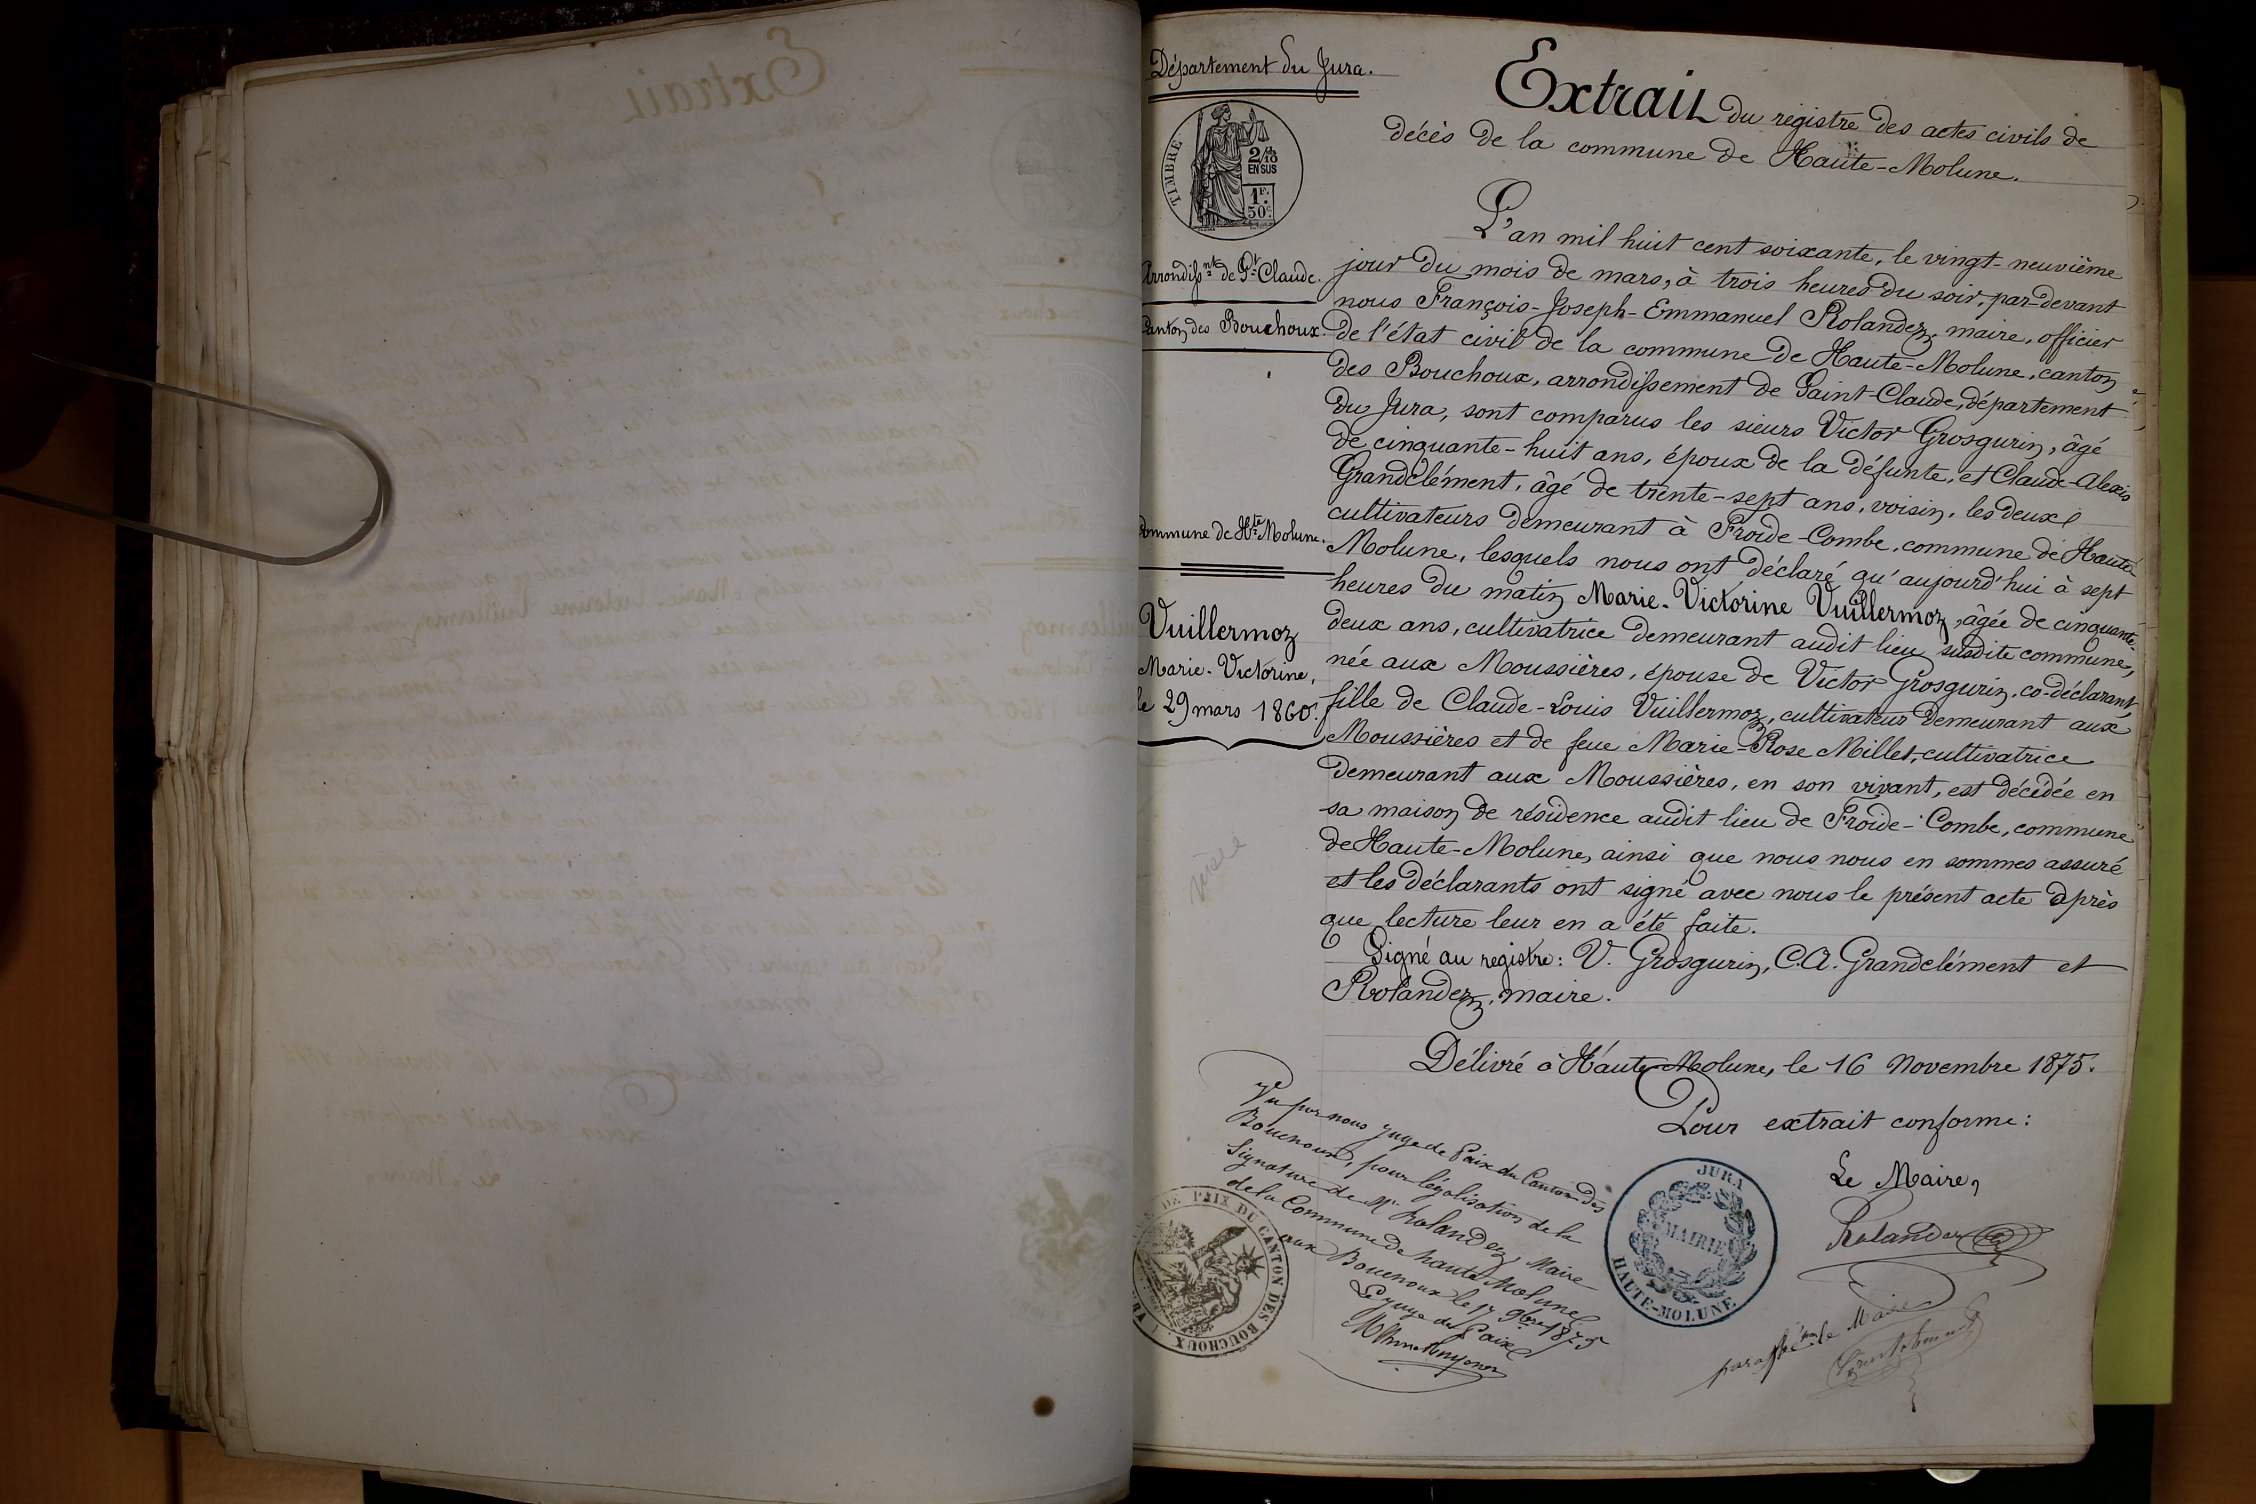 Département du Jura.
TIMBRE
2/10
EN SUS
1F.
50c.
Arrondisst de St Claude.
Canton des Bouchoux.
Commune de Hte Molune.
Vuillermoz
Marie-Victorine,
le 29 mars 1860.
Extrait du registre des actes civils de
décès de la commune de Haute-Molune.
L'an mil huit cent soixante, le vingt-neuvième
jour du mois de mars, à trois heures du soir, par-devant
nous François-Joseph-Emmanuel Rolandez, maire, officier
de l'état civil de la commune de Haute-Molune, canton
des Bouchoux, arrondissement de Saint-Claude, département
du Jura, sont comparus les sieurs Victor Grosgurin, âgé
de cinquante-huit ans, époux de la défunte, et Claude-Alexis
Grandclément, âgé de trente-sept ans, voisin, les deux
cultivateurs demeurant à Froide-Combe, commune de Haute-
Molune, lesquels nous ont déclaré qu'aujourd'hui à sept
heures du matin Marie-Victorine Vuillermoz, âgée de cinquante-
deux ans, cultivatrice demeurant audit lieu susdite commune,
née aux Moussières, épouse de Victor Grosgurin, co-déclarant,
fille de Claude-Louis Vuillermoz, cultivateur demeurant aux
Moussières et de feue Marie-Rose Millet, cultivatrice
demeurant aux Moussières, en son vivant, est décédée en
sa maison de résidence audit lieu de Froide-Combe, commune
de Haute-Molune, ainsi que nous nous en sommes assuré
et les déclarants ont signé avec nous le présent acte après
que lecture leur en a été faite.
Signé au registre: V. Grosgurin, C.A. Grandclément et
Rolandez, maire.
Délivré à Haute-Molune, le 16 Novembre 1875.
Pour extrait conforme:
Le Maire,
Rolandez
Vu par nous juge de Paix du Canton des
Bouchoux, pour légalisation de la
signature de Mr Rolandez, Maire
de la Commune de haute Molune
aux Bouchoux le 17 9bre 1875
Le juge de Paix
DE PAIX DU CANTON DES BOUCHOUX
JURA
MAIRIE
HAUTE-MOLUNE
le Maire